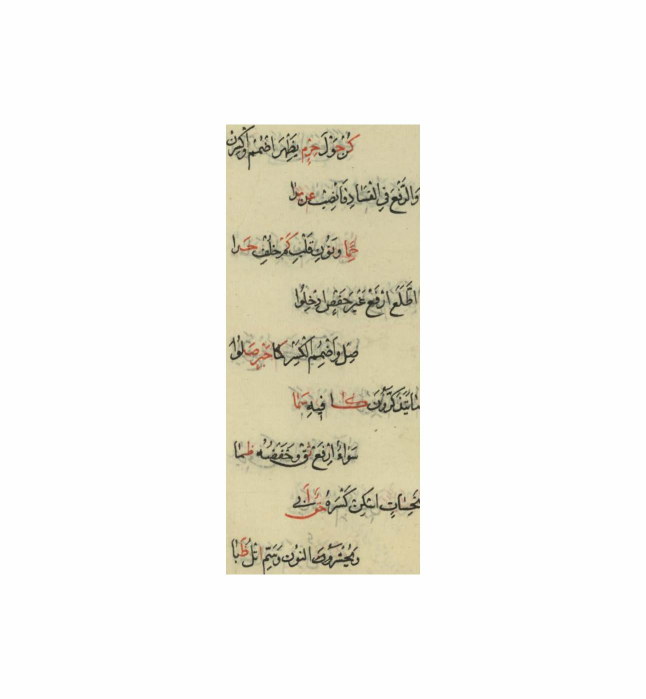 كُنْ حَوْلَ حِرْمٍ يَظْهَرَ اضْمُمْ وَاكْسِرَنْ
وَالرَّفْعَ فِي الْفَسَادِ فَانْصِبْ عَنْ مَدَا
حِمًا وَنَوِّنْ قَلْبِ كَمْ خُلْفٍ حَدَا
اطَّلَعَ ارْفَعْ غَيْرَ حَفْصٍ ادْخِلُوا
صِلْ وَاضْمُمِ الْكَسْرَ كَمَا حَبْرٍ صَلُوا
مَا يَتَذَكَّرُونَ كَافِيهِ سَمَا
سَوَاءٌ ارْفَعْ ثِقْ وَخَفْضُهُ ظَمَا
نَحْسَاتٍ اسْكِنْ كَسْرَهُ حَقًّا أَبَى
وَنَحْشُرُ النُّونُ وَسَمِّ اتْلُ ظُبَا